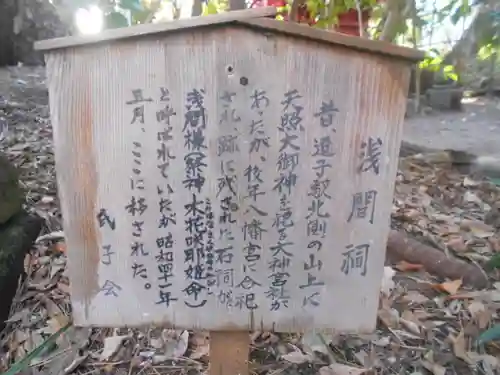 浅間祠
昔、逗子駅北側の山上に
天照大御神を祀る大神宮社が
あったが、後年八幡宮に合祀
され跡に残された石祠が
浅間様(祭神 木花咲耶姫命)
と呼ばれていたが昭和四十一年
五月、ここに移された。
氏子会